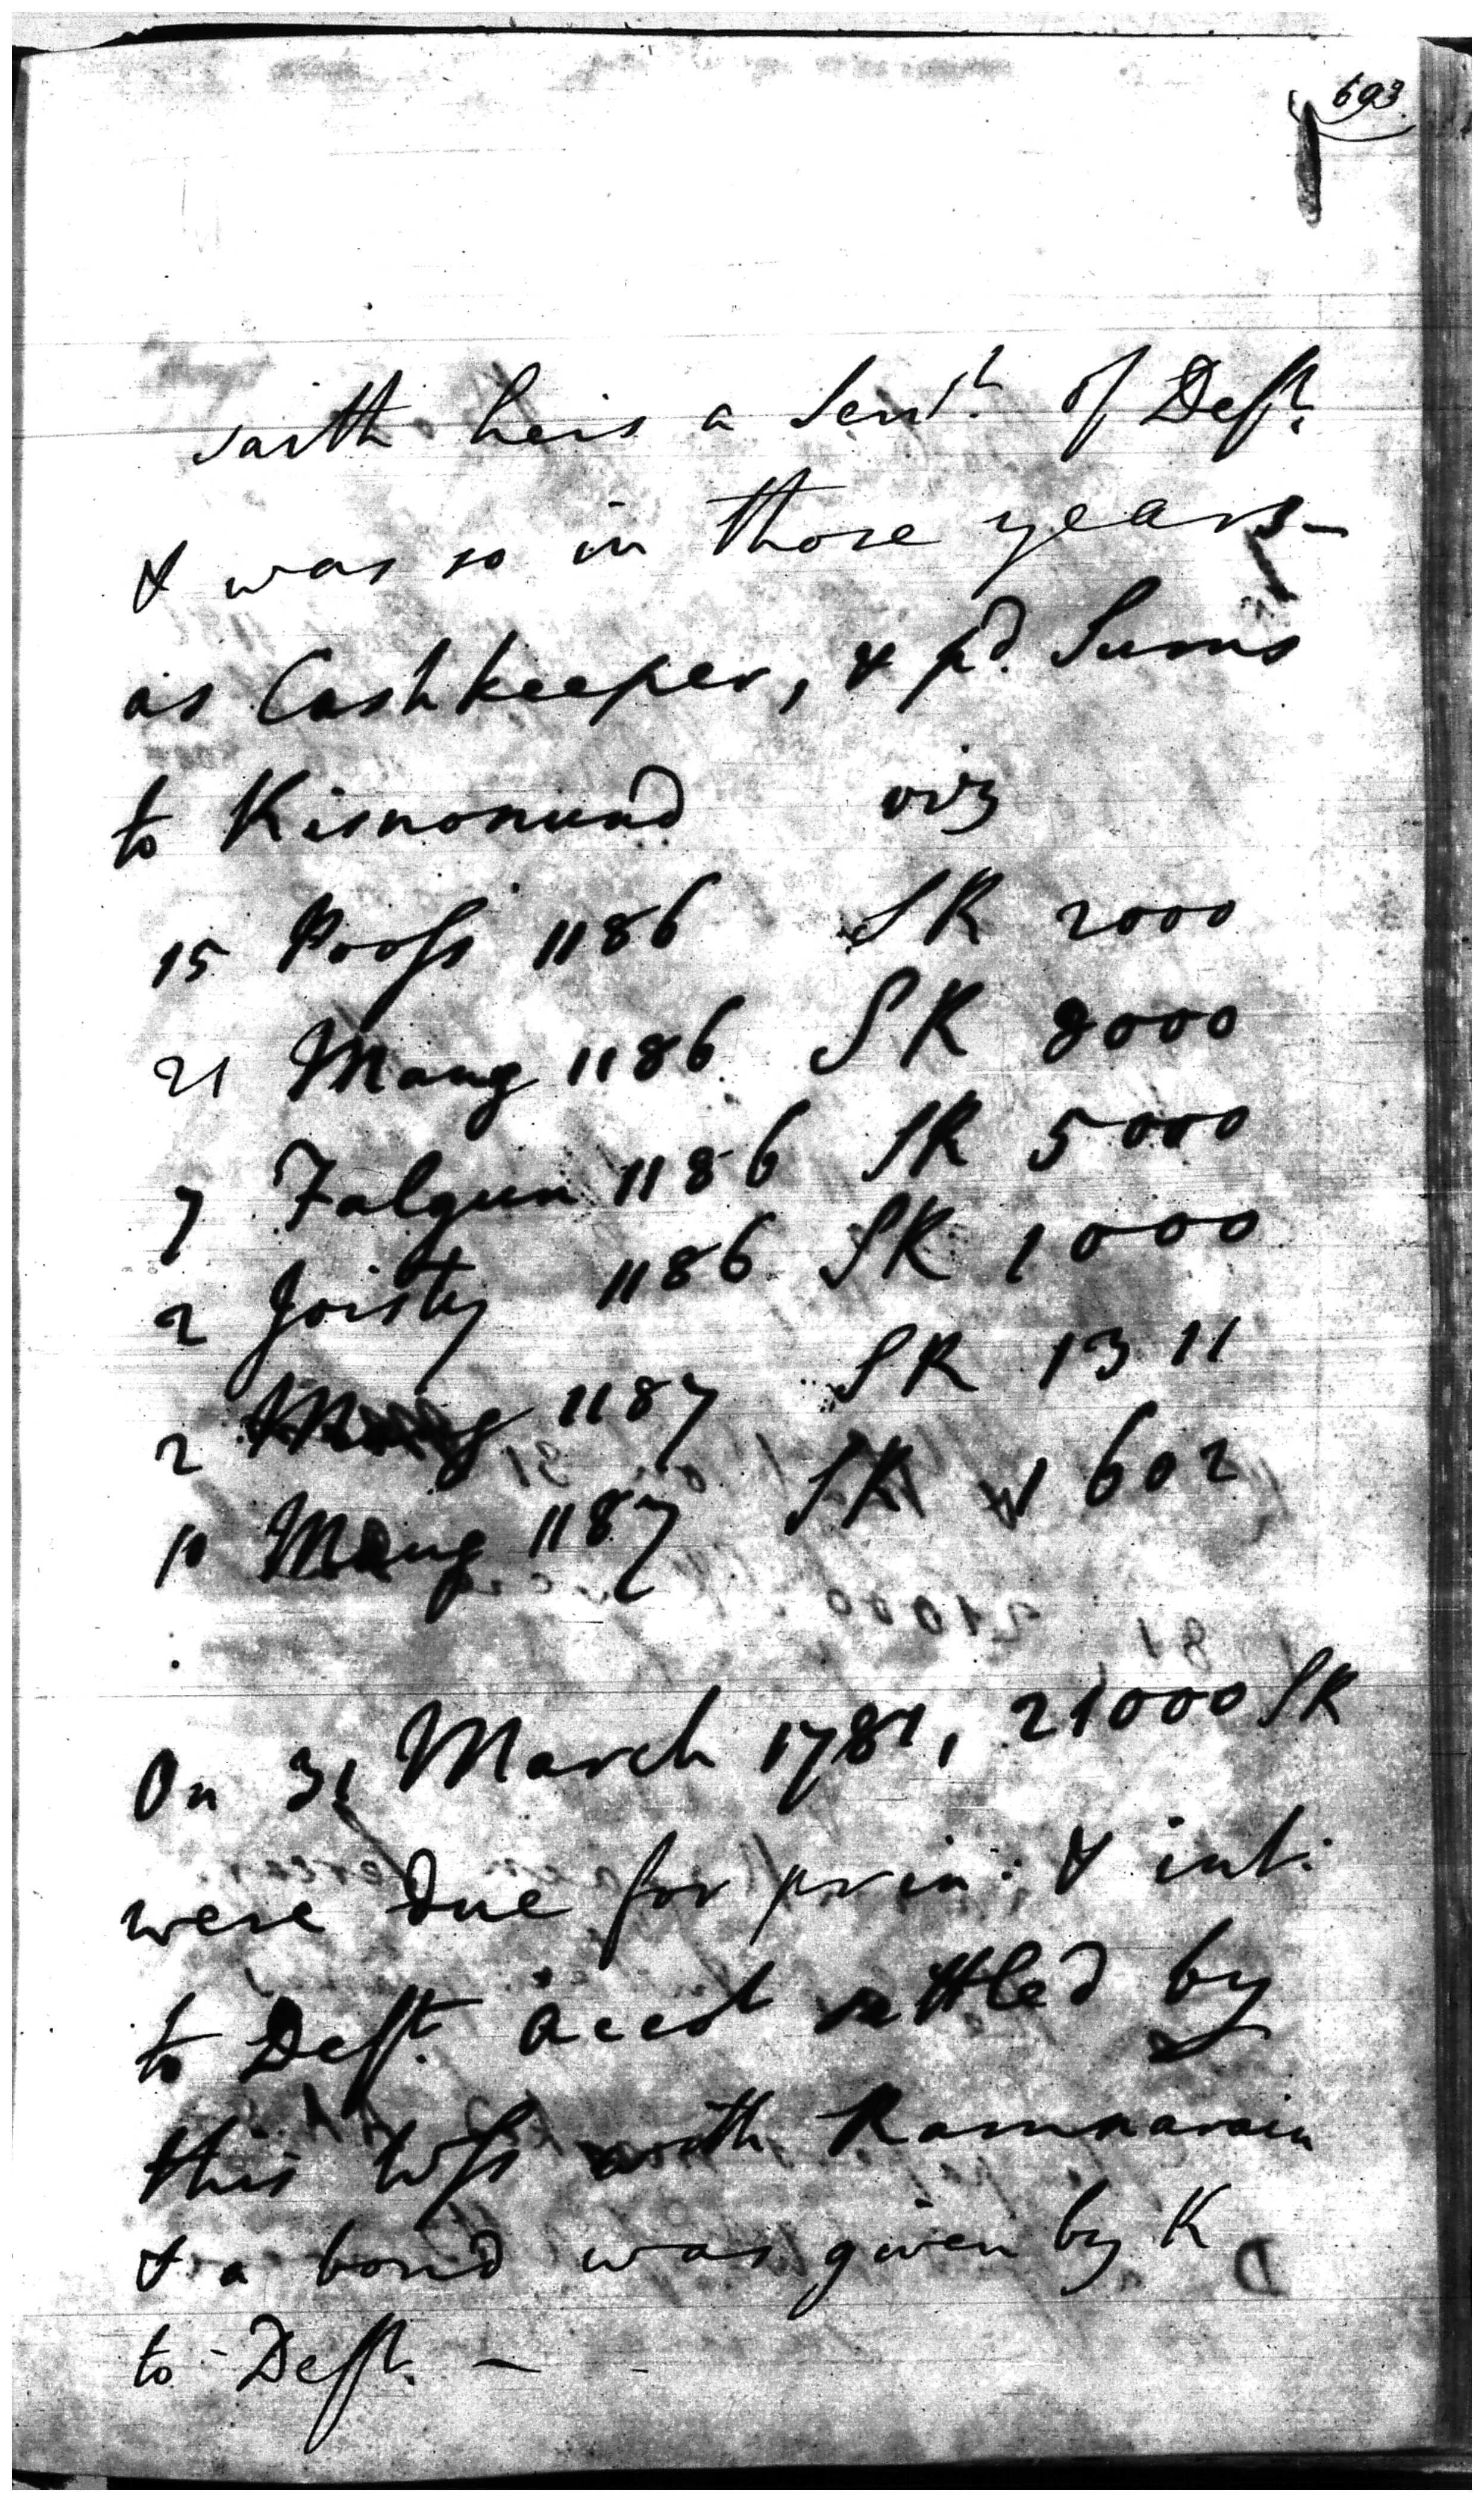 693
saith heis a Serv.t of Deft.
& was so in those years —
as Cashkeeper, & p.d Sums
to Kisnonund viz
15 Pooss 1186 SR 2000
21 Maug 1186 SR 8000
7 Falgun 1186 SR 5000
2 Joisty 1186 SR 1000
2 1187 SR 1311
10 Maug 1187 SR 1602
On 31 March 1781, 21000 SR
were due for prin: & int:
to Deft. acct settled by
this Wss with Ramnarain
& a bond was given by K
to Deft. —